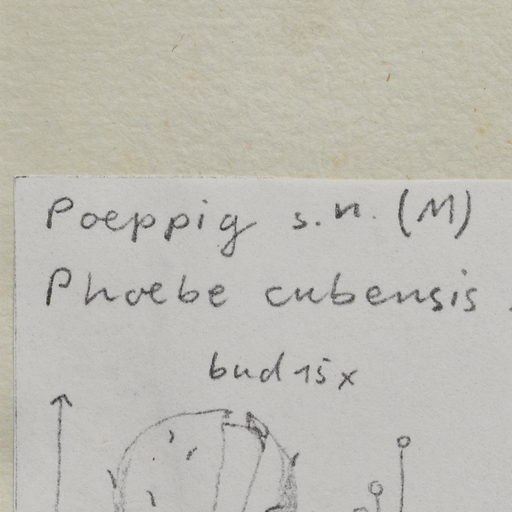 Poeppig s.n. (M)
Phoebe cubensis
bud 15x